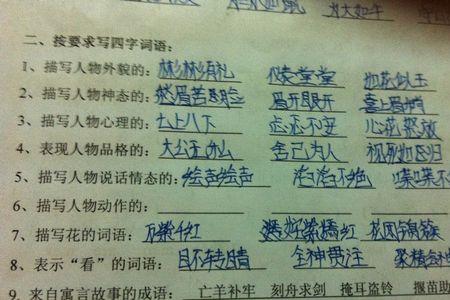 二、按要求写四字词语：
1、描写人物外貌的：彬彬有礼 仪表堂堂 如花似玉
2、描写人物神态的：愁眉苦脸 眉开眼开 喜上眉梢
3、描写人物心理的：七上八下 忐忑不安 心花怒放
4、表现人物品格的：大公无私 舍己为人 视死如归
5、描写人物说话情态的：绘声绘声 滔滔不绝
6、描写人物动作的：
7、描写花的词语：万紫千红 姹紫嫣红 花团锦簇
8、表示“看”的词语：目不转睛 全神贯注 聚精会神
9、来自寓言故事的成语：亡羊补牢 刻舟求剑 掩耳盗铃 揠苗助